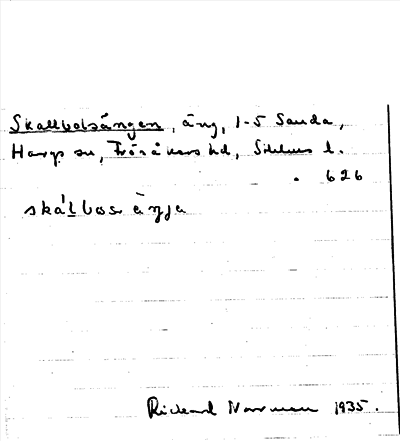 Skallbolsängen, äng, 1-5 Sanda,
Hargs sn, Frösåkers hd, Sthlms l.
. 626
skálbos ä̀ŋja
Rickard Norrman 1935.